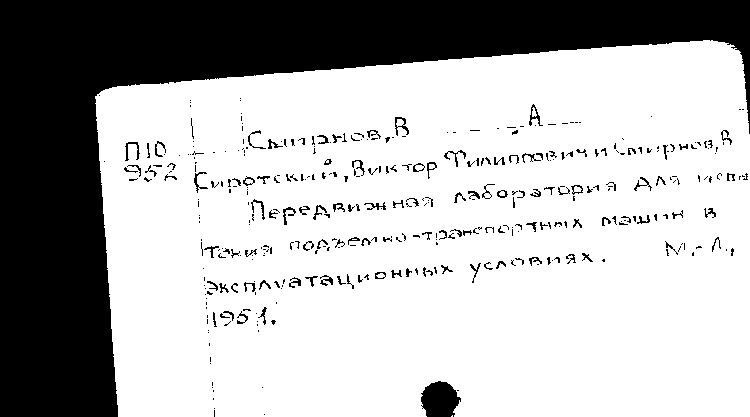 П10 Смирнов, В А
952 Сиротский, Виктор Филиппович и Смирнов, В
Передвижная лаборатория для испы
тания подъемно-транспортных машин в
эксплуатационных условиях. М.-Л.,
1951.